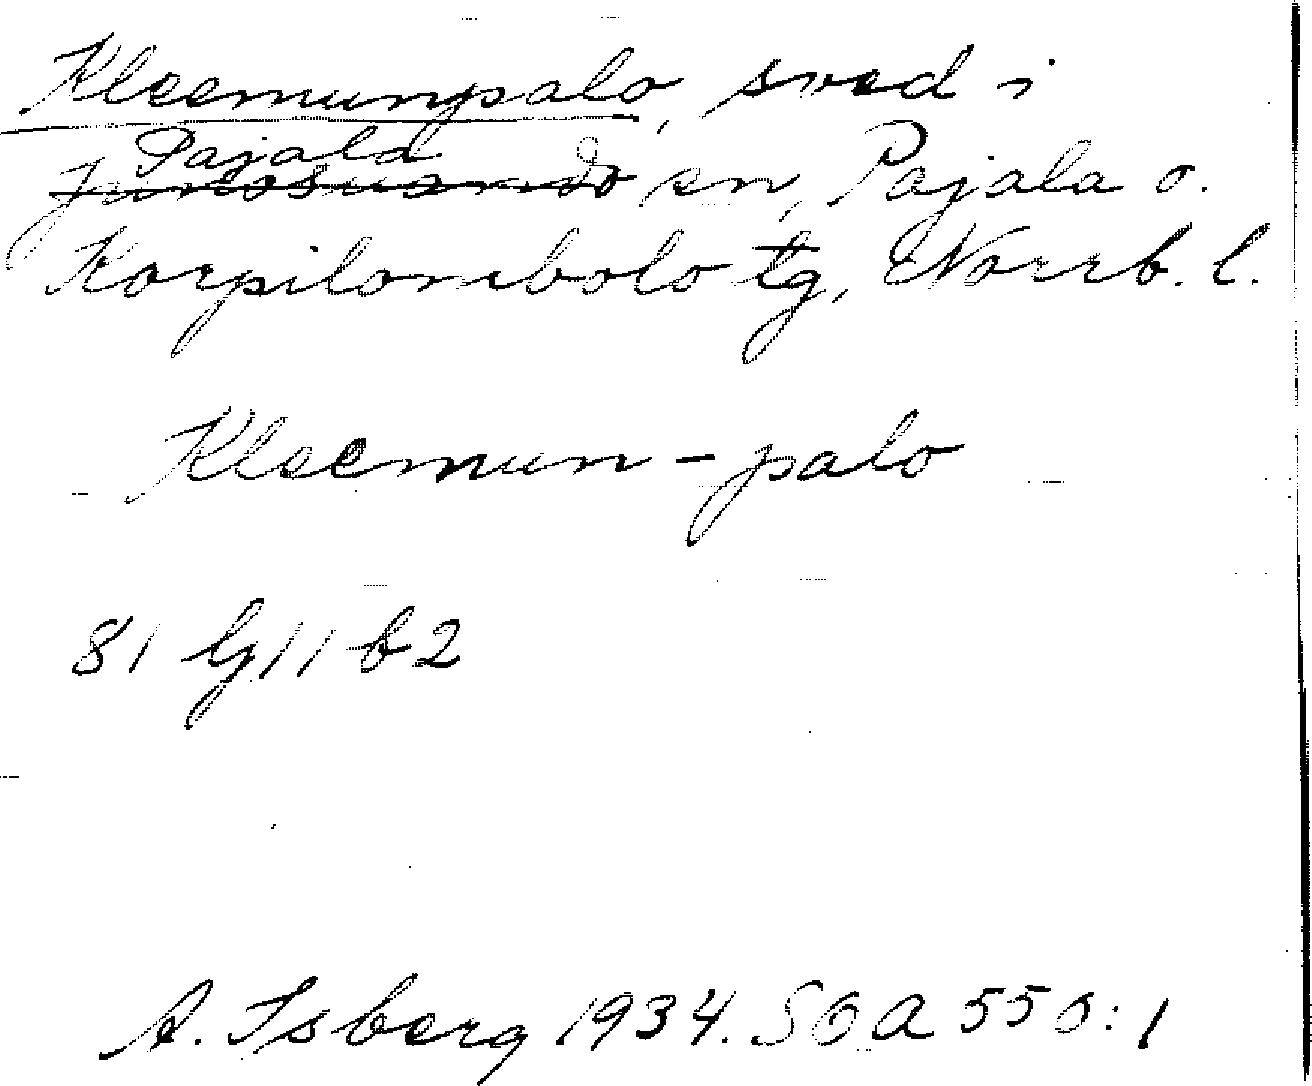 Kleemunpalo, sved i
Pajala
Junosuando sn, Pajala o.
Korpilombolo tg, Norrb. l.
Kleemun - palo
81 G 11 b 2
A. Isberg 1934. SOA 550:1